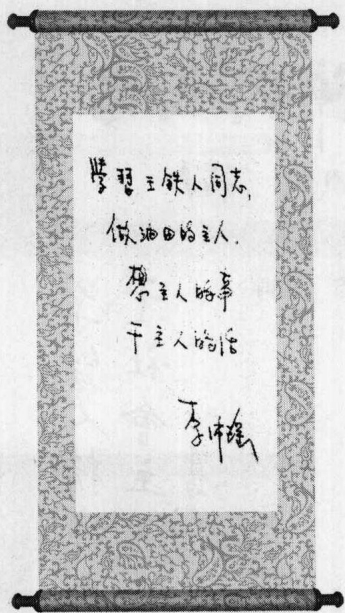 學習王铁人同志,
做油田的主人.
想主人的事
干主人的活
李沛瑶